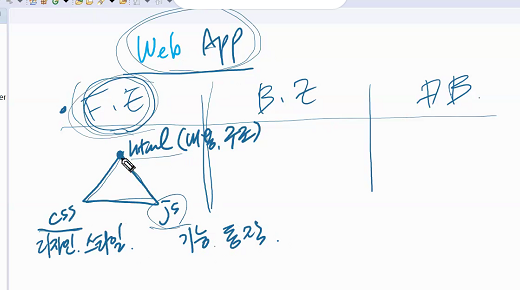 Web App
F.E B.E DB.
html (내용, 구조)
css js
디자인. 스타일. 기능. 동작.